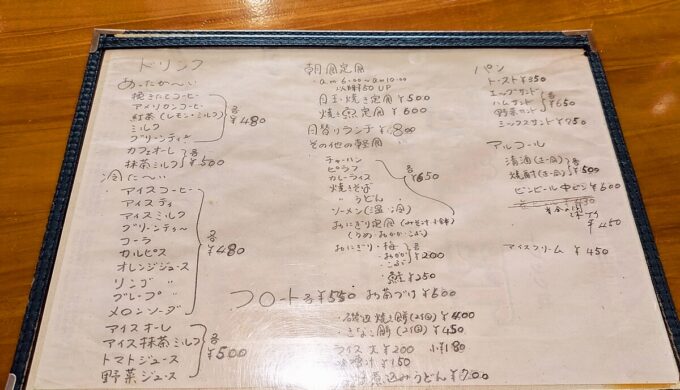 ドリンク
あったか〜い
挽きたてコーヒー
アメリカンコーヒー
紅茶(レモン・ミルク)
ミルク
グリーンティー
各¥480
カフェオーレ
抹茶ミルク
各¥500
冷た〜い
アイスコーヒー
アイスティ
アイスミルク
グリーンティ〜
コーラ
カルピス
オレンジジュース
リンゴ 〃
グレープ 〃
メロンソーダ
各¥480
アイスオーレ
アイス抹茶ミルク
トマトジュース
野菜ジュース
各¥500
フロート各¥550
朝食定食
am6:00〜am10:00
以降¥50UP
目玉焼き定食 ¥500
焼き魚定食 ¥600
日替りランチ ¥800
その他の軽食
チャーハン
ピラフ
カレーライス
焼きそば
〃うどん
ソーメン(温・冷)
おにぎり定食(みそ汁・小鉢)
(うめ・おかか・こぶ)
各¥650
おにぎり・梅
・おかか
・こぶ
各¥200
・鮭 ¥250
お茶づけ ¥500
・磯辺焼き餅(2ヶ) ¥400
・きなこ餅(2ヶ) ¥450
ライス 大¥200 小¥180
味噌汁 ¥150
煮込みうどん ¥700
パン
トースト ¥350
エッグサンド
ハムサンド
野菜サンド
各¥650
ミックスサンド ¥750
アルコール
清酒(一合)
焼酎(一合)
各¥500
ビンビール中ビン ¥600
¥450
アイスクリーム ¥450